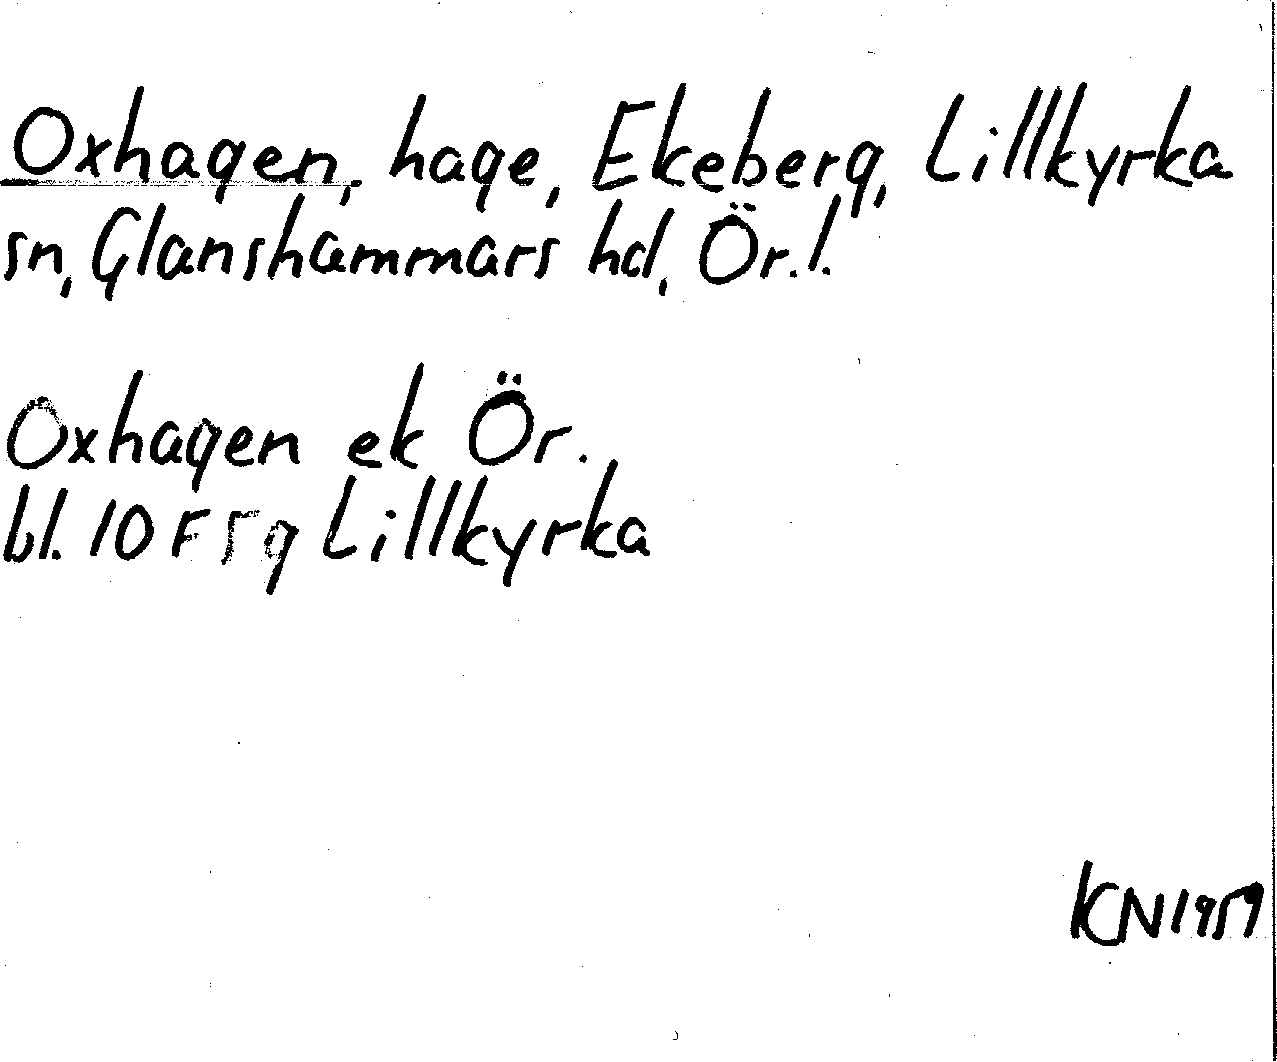 Oxhagen, hage, Ekeberg, Lillkyrka
sn, Glanshammars hd, Ör. l.
Oxhagen ek Ör.
bl. 10 F 5 g Lillkyrka
KN 1959